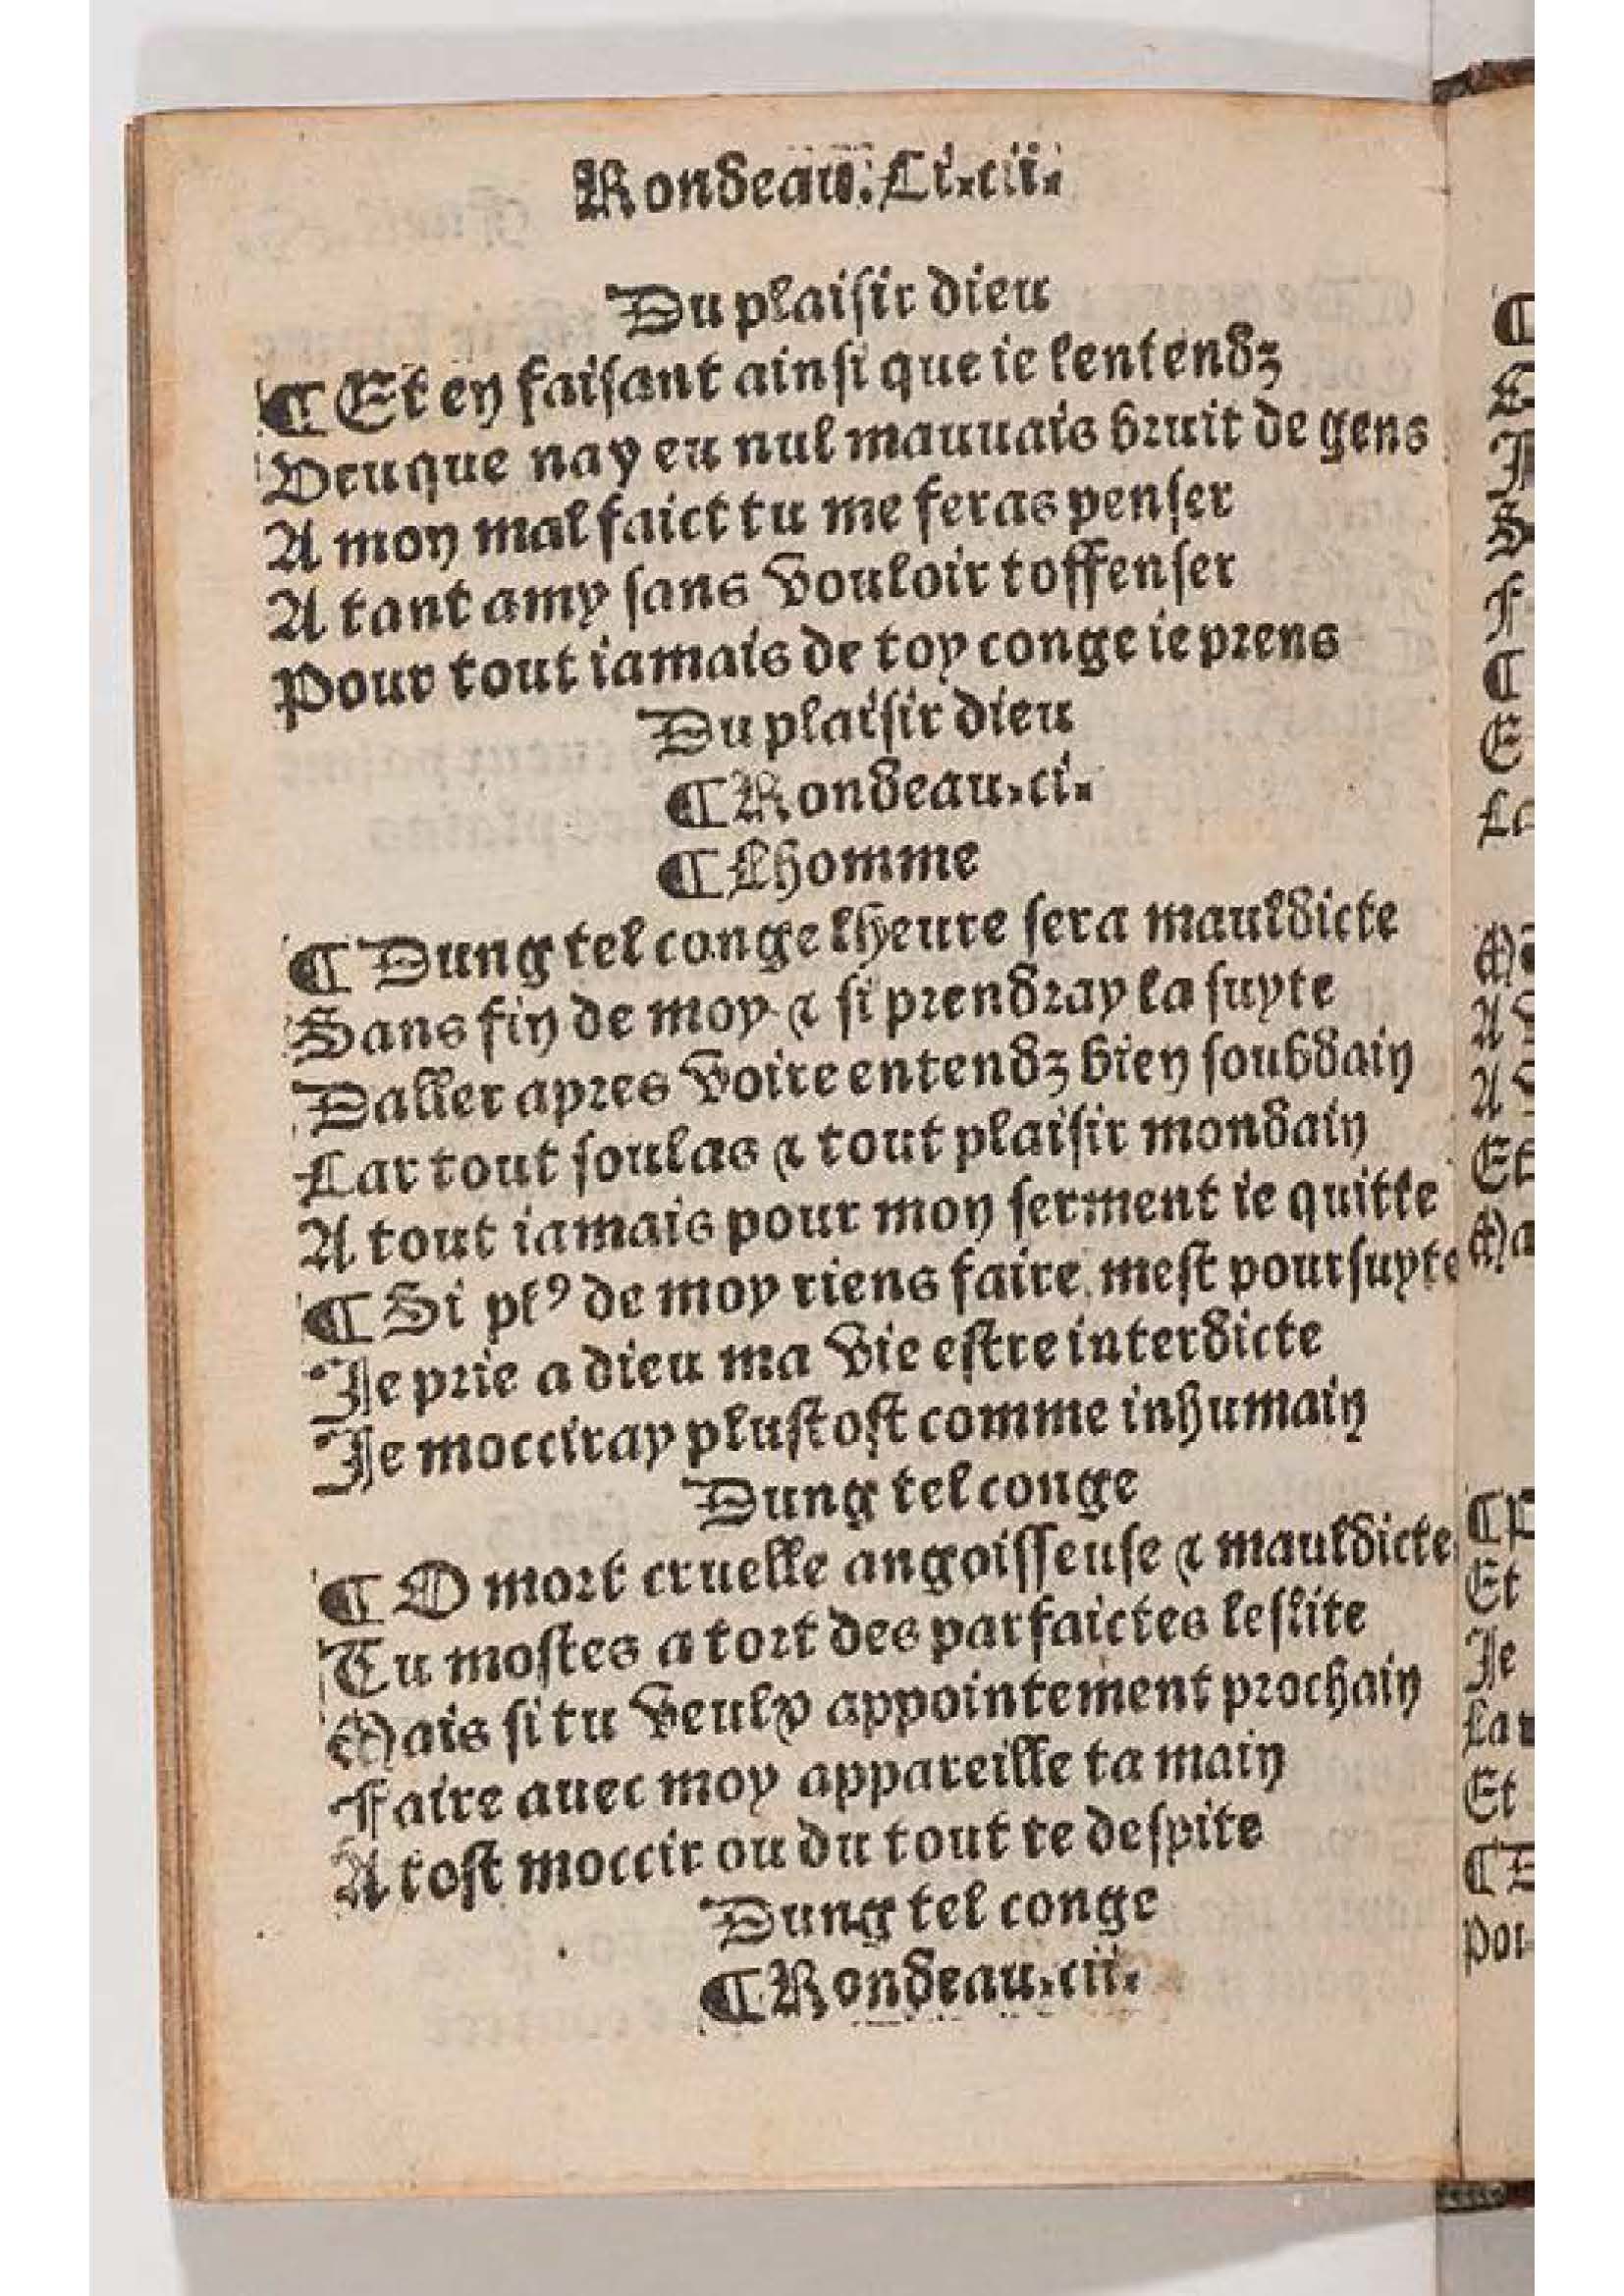 Rondeau. Ci.cii.
Du plaisir dieu
¶ Et en faisant ainsi que ie lentendz
Veuque nay eu nul mauuais bruit de gens
A mon mal faict tu me feras penser
A tant amy sans vouloir toffenser
Pour tout iamais de toy conge ie prens
Du plaisir dieu
¶ Rondeau. ci.
¶ Lhomme
¶ Dung tel conge lheure sera mauldicte
Sans fin de moy & si prendray la suyte
Daller apres voire entendz bien soubdain
Car tout soulas & tout plaisir mondain
A tout iamais pour mon serment ie quitte
¶ Si plꝰ de moy riens faire mest poursuyte
Je prie a dieu ma vie estre interdicte
Je mocciray plustost comme inhumain
Dung tel conge
¶ O mort cruelle angoisseuse & mauldicte
Tu mostes a tort des parfaictes leslite
Mais si tu veulx appointement prochain
Faire auec moy appareille ta main
A tost moccir ou du tout te despite
Dung tel conge
¶ Rondeau. cii.